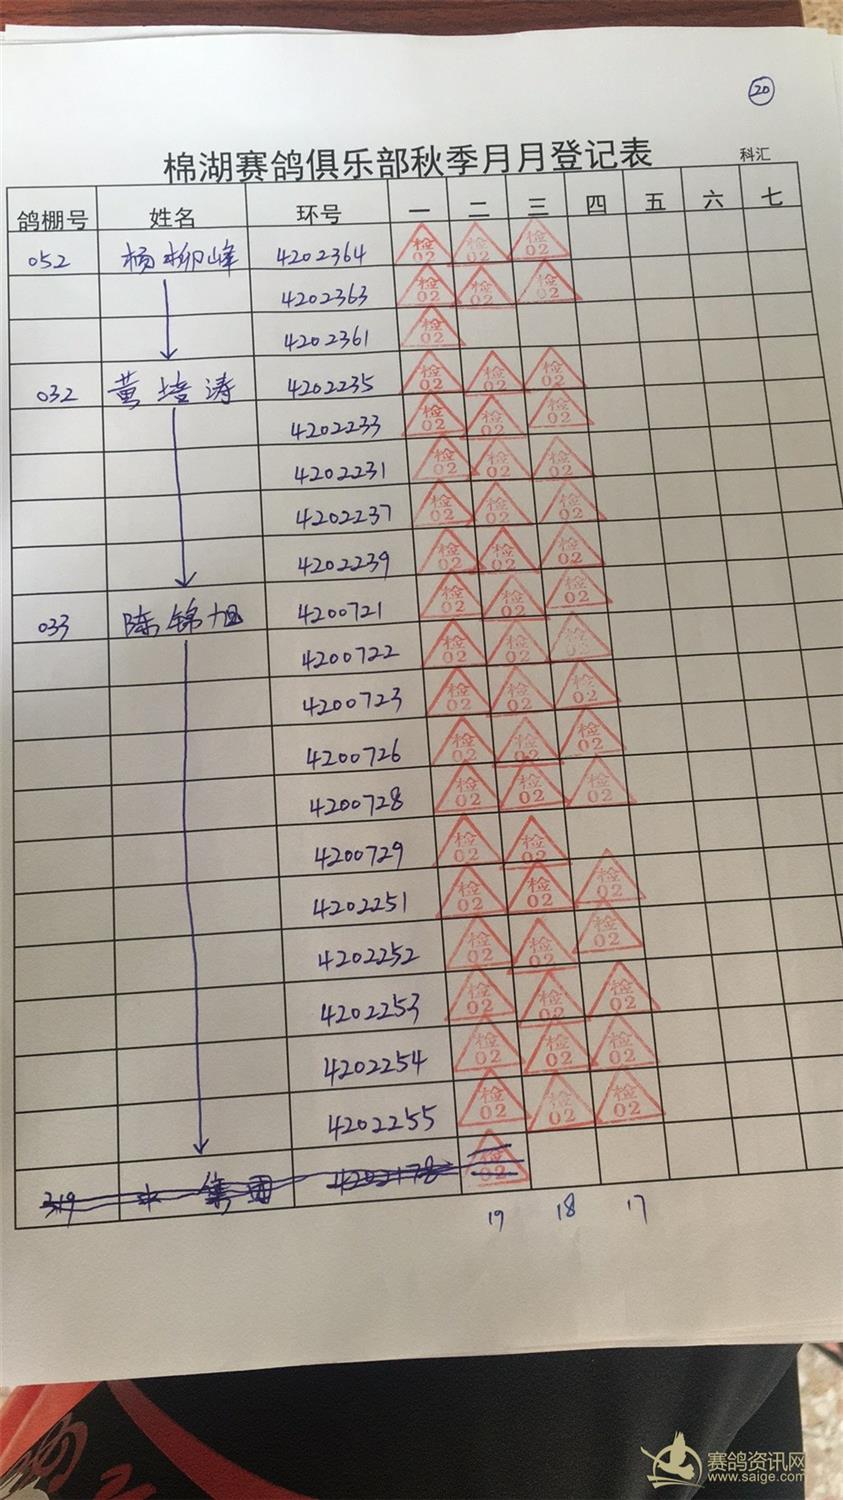 20
棉湖赛鸽俱乐部秋季月月登记表 科汇
鸽棚号 姓名 环号 一 二 三 四 五 六 七
052 杨柳峰 4202364 检02 检02 检02
4202363 检02 检02 检02
4202361 检02
032 黄培涛 4202235 检02 检02 检02
4202233 检02 检02 检02
4202231 检02 检02 检02
4202237 检02 检02 检02
4202239 检02 检02 检02
033 陈锦旭 4200721 检02 检02 检02
4200722 检02 检02 检02
4200723 检02 检02 检02
4200726 检02 检02 检02
4200728 检02 检02 检02
4200729 检02 检02
4202251 检02 检02 检02
4202252 检02 检02 检02
4202253 检02 检02 检02
4202254 检02 检02 检02
4202255 检02 检02 检02
319 集团 4202178 检02
19 18 17
赛鸽资讯网
www.saige.com